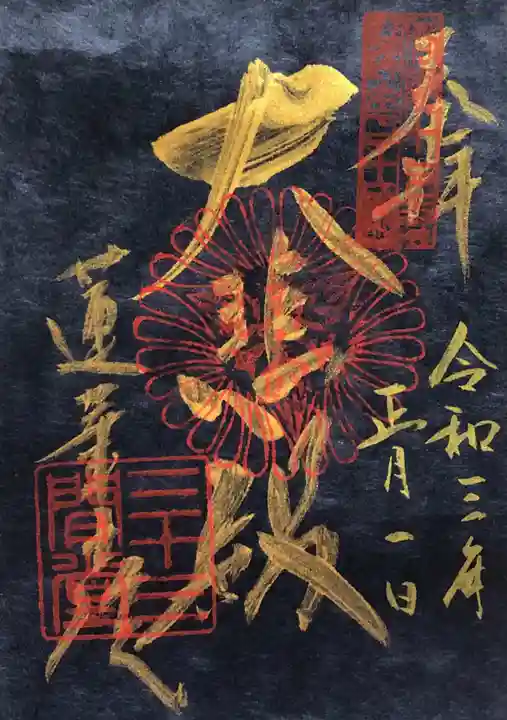 奉拝
令和三年
正月一日
大悲殿
蓮華王院
三十三
間堂